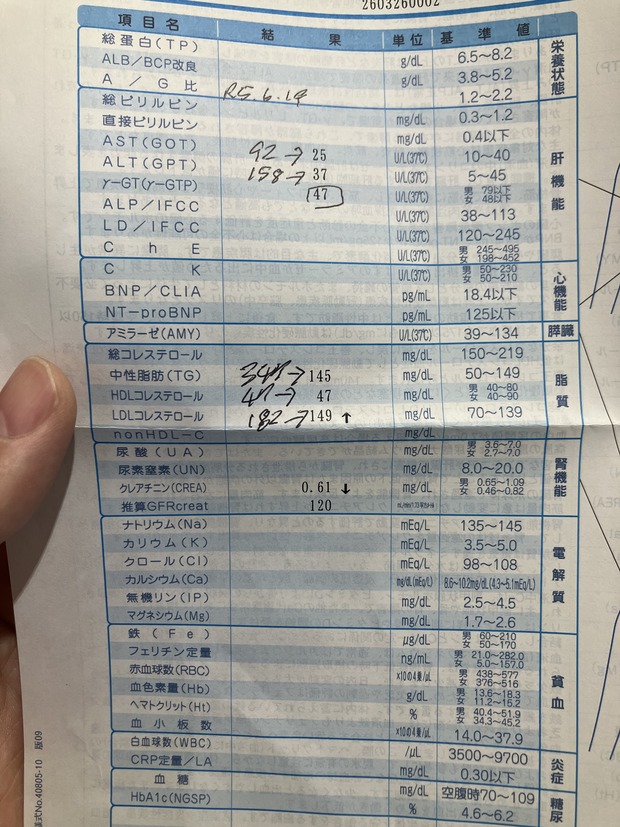 2603260002
項目名 結果 単位 基準値
総蛋白(TP) g/dL 6.5～8.2 栄養状態
ALB/BCP改良 g/dL 3.8～5.2
A/G比 1.2～2.2
R5.6.19
総ビリルビン mg/dL 0.3～1.2 肝機能
直接ビリルビン mg/dL 0.4以下
AST(GOT) 92→25 U/L(37℃) 10～40
ALT(GPT) 158→37 U/L(37℃) 5～45
γ-GT(γ-GTP) 47 U/L(37℃) 男 79以下 女 48以下
ALP/IFCC U/L(37℃) 38～113
LD/IFCC U/L(37℃) 120～245
ChE U/L(37℃) 男 245～495 女 198～452
CK U/L(37℃) 男 50～230 女 50～210 心機能
BNP/CLIA pg/mL 18.4以下
NT-proBNP pg/mL 125以下
アミラーゼ(AMY) U/L(37℃) 39～134 膵臓
総コレステロール mg/dL 150～219 脂質
中性脂肪(TG) →145 mg/dL 50～149
HDLコレステロール →47 mg/dL 男 40～80 女 40～90
LDLコレステロール 182→149 ↑ mg/dL 70～139
nonHDL-C mg/dL
尿酸(UA) mg/dL 男 3.6～7.0 女 2.7～7.0 腎機能
尿素窒素(UN) mg/dL 8.0～20.0
クレアチニン(CREA) 0.61 ↓ mg/dL 男 0.65～1.09 女 0.46～0.82
推算GFRcreat 120
ナトリウム(Na) mEq/L 135～145 電解質
カリウム(K) mEq/L 3.5～5.0
クロール(Cl) mEq/L 98～108
カルシウム(Ca) mg/dL(mEq/L) 8.6～10.2mg/dL(4.3～5.1mEq/L)
無機リン(IP) mg/dL 2.5～4.5
マグネシウム(Mg) mg/dL 1.7～2.6
鉄(Fe) μg/dL 男 60～210 女 50～170 貧血
フェリチン定量 ng/mL 男 21.0～282.0 女 5.0～157.0
赤血球数(RBC) ×10の4乗/μL 男 438～577 女 376～516
血色素量(Hb) g/dL 男 13.6～18.3 女 11.2～15.2
ヘマトクリット(Ht) % 男 40.4～51.9 女 34.3～45.2
血小板数 ×10の4乗/μL 14.0～37.9
白血球数(WBC) /μL 3500～9700 炎症
CRP定量/LA mg/dL 0.30以下
血糖 mg/dL 空腹時70～109 糖尿
HbA1c(NGSP) % 4.6～6.2
様式No.40805-10 版09